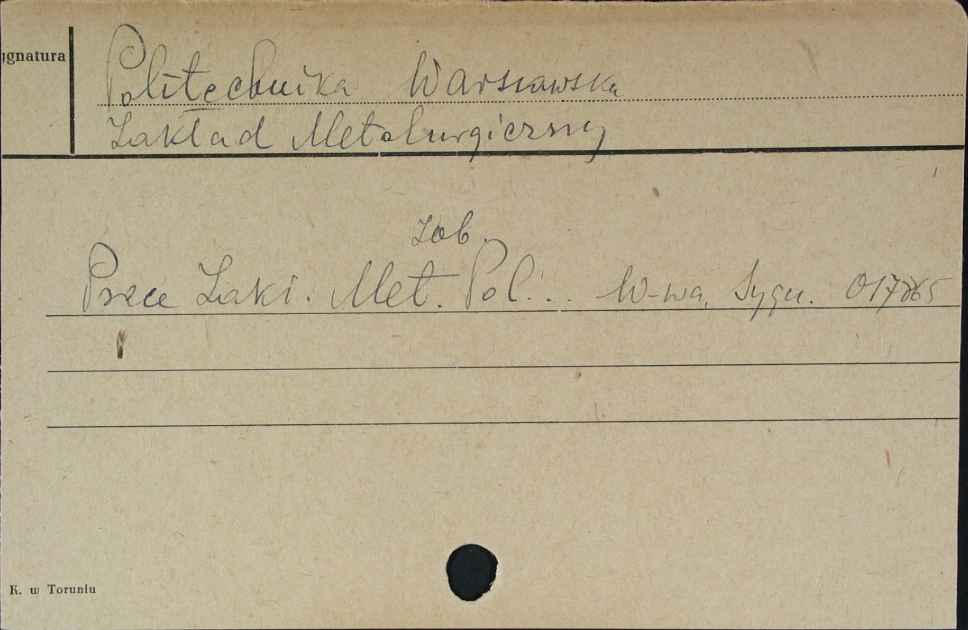 ygnatura
Politechnika Warszawska
Zakład Metalurgiczny
zob.
Prace Zakł. Met. Pol... W-wa, Sygn.
K. w Toruniu